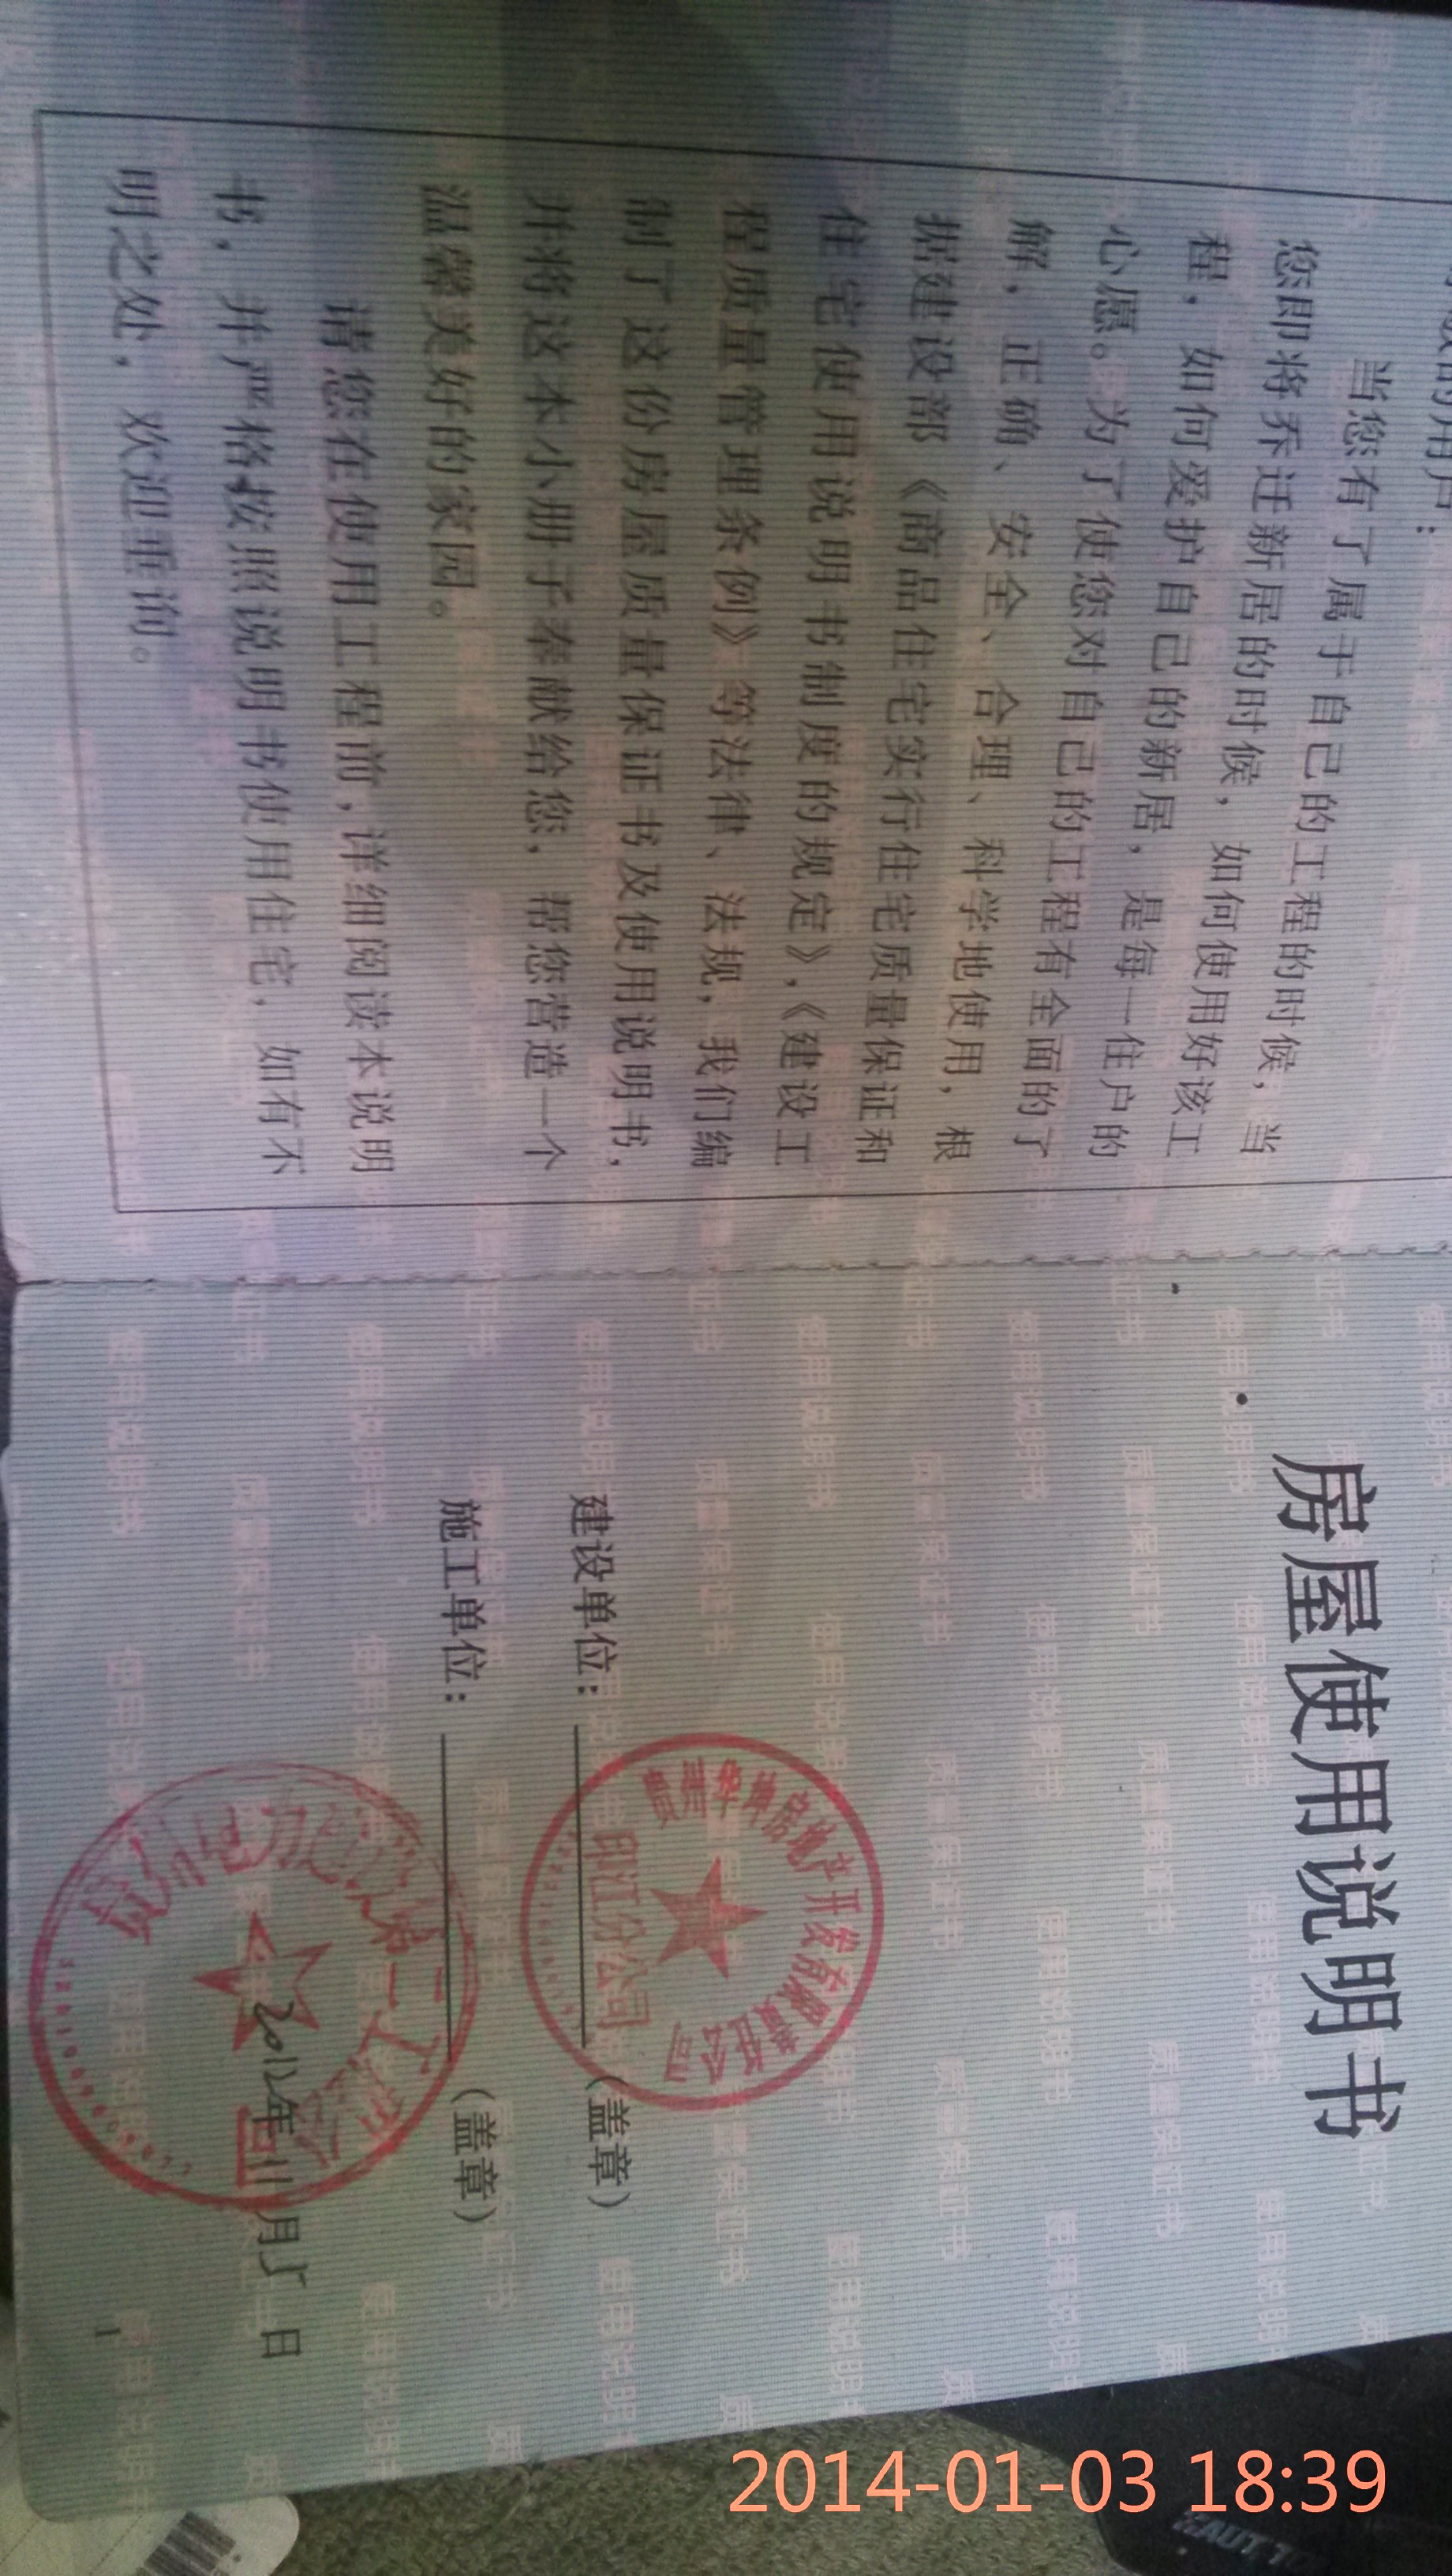 的用户：
当您有了属于自己的工程的时候，当
您即将乔迁新居的时候，如何使用好该工
程，如何爱护自己的新居，是每一住户的
心愿。为了使您对自己的工程有全面的了
解，正确、安全、合理、科学地使用，根
据建设部《商品住宅实行住宅质量保证和
住宅使用说明书制度的规定》，《建设工
程质量管理条例》等法律、法规，我们编
制了这份房屋质量保证书及使用说明书，
并将这本小册子奉献给您，帮您营造一个
温馨美好的家园。
请您在使用工程前，详细阅读本说明
书，并严格按照说明书使用住宅，如有不
明之处，欢迎垂询。
房屋使用说明书
建设单位：（盖章）
贵州华坤房地产开发有限责任公司
印江分公司
施工单位：（盖章）
贵州电力建设第二工程公司
年11月 日
1
2014-01-03 18:39